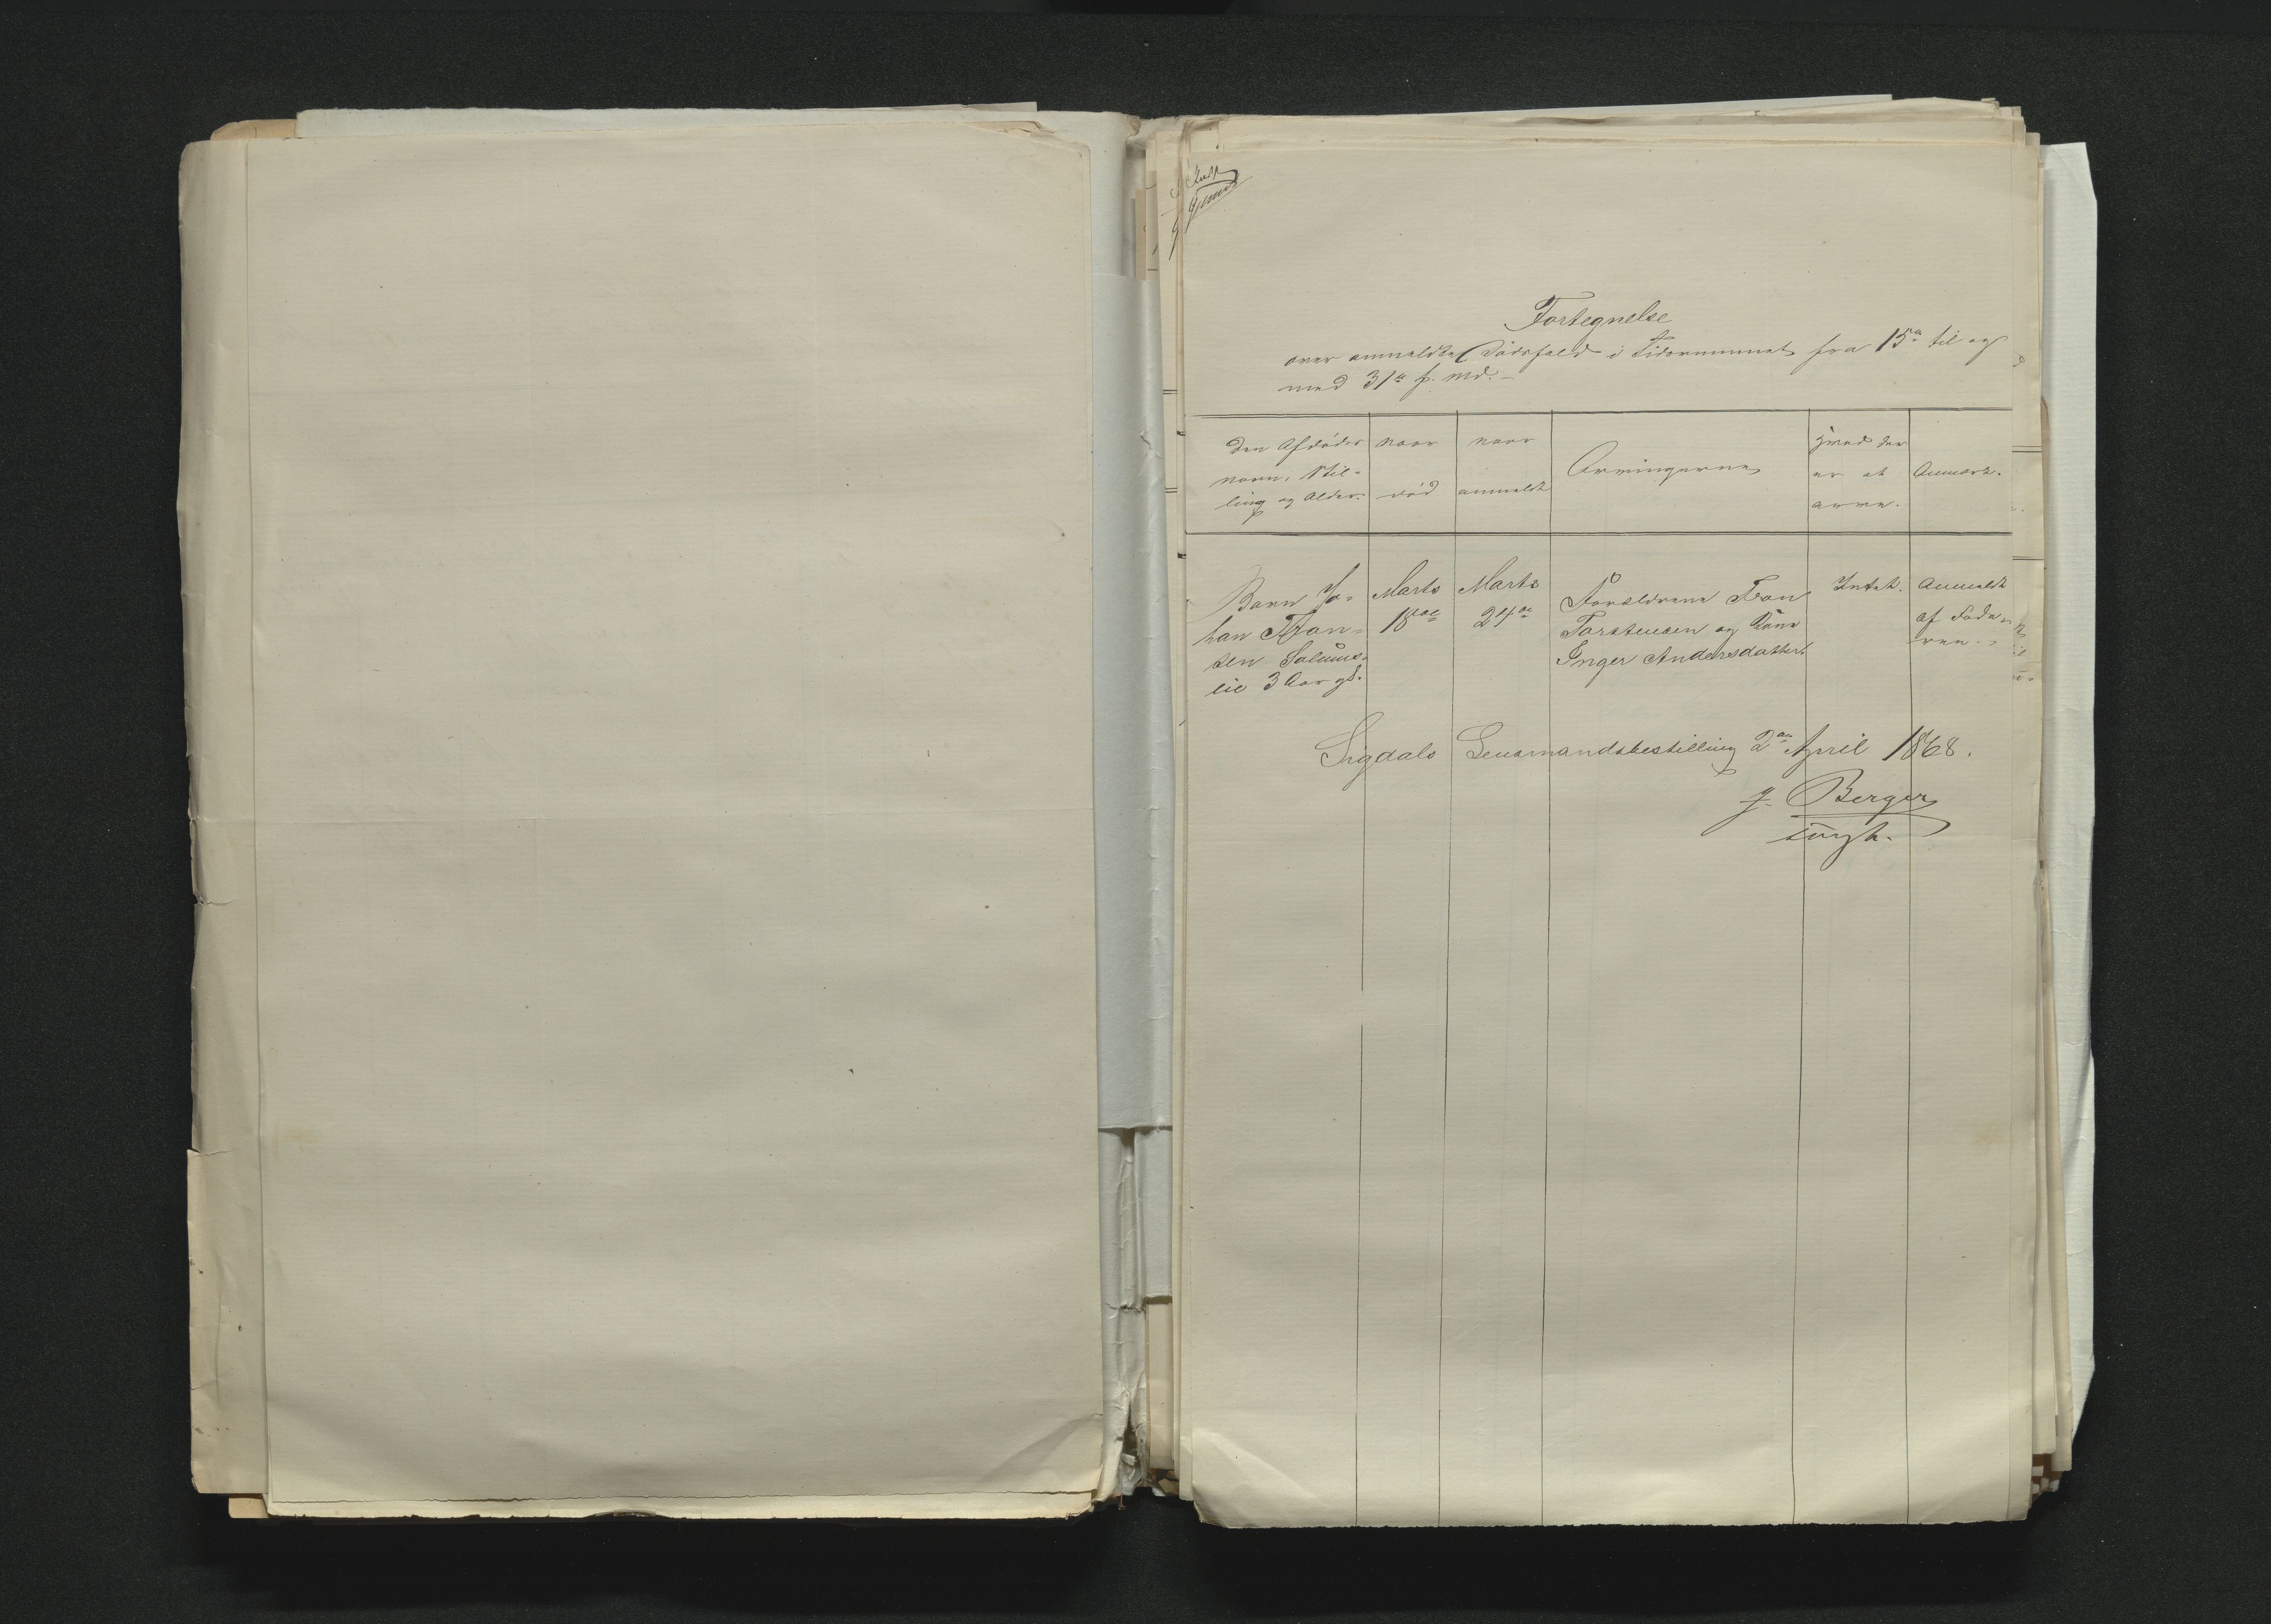 Fortegnelse
over anmeldte Dødsfald i Tidsrummet fra 15de til og
med 31te f. Md. –
Den Afdødes
Navn, Stil-
ling og Alder.
Naar
død
Naar
anmeldt
Arvingerne
Hvad der
er at
arve.
Anmærk.
Barn Jo-
han Tron-
sen Solums-
lie 3 Aar gl.
Marts
18de
Marts
24de
Forældrene Tron
Torstensen og Kone
Inger Andersdatter.
Intet.
Anmeldt
af Fade-
ren.
Sigdals Lensmandsbestilling 2den April 1868.
J. Berger